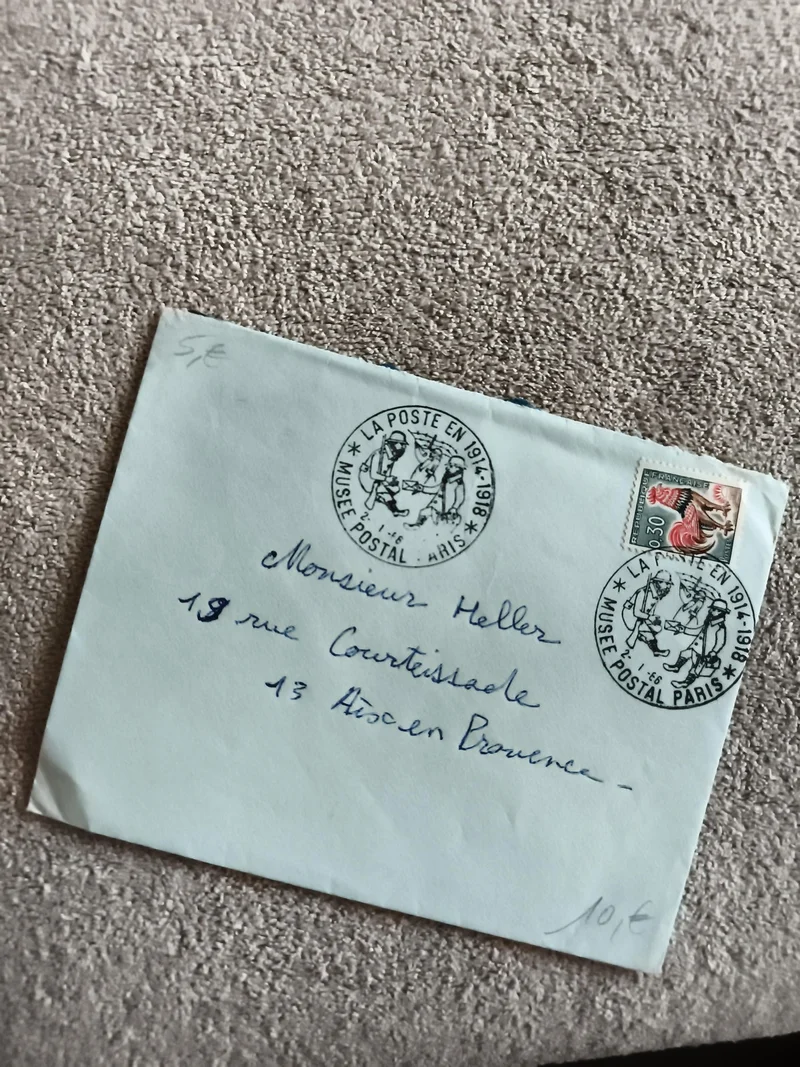 5,€
* LA POSTE EN 1914-1918 *
2- 1 -66
MUSEE POSTAL PARIS
REPUBLIQUE FRANCAISE
0,30
* LA POSTE EN 1914-1918 *
2- 1 -66
MUSEE POSTAL PARIS
Monsieur Heller
19 rue Courteissade
13 Aix en Provence -
10,€